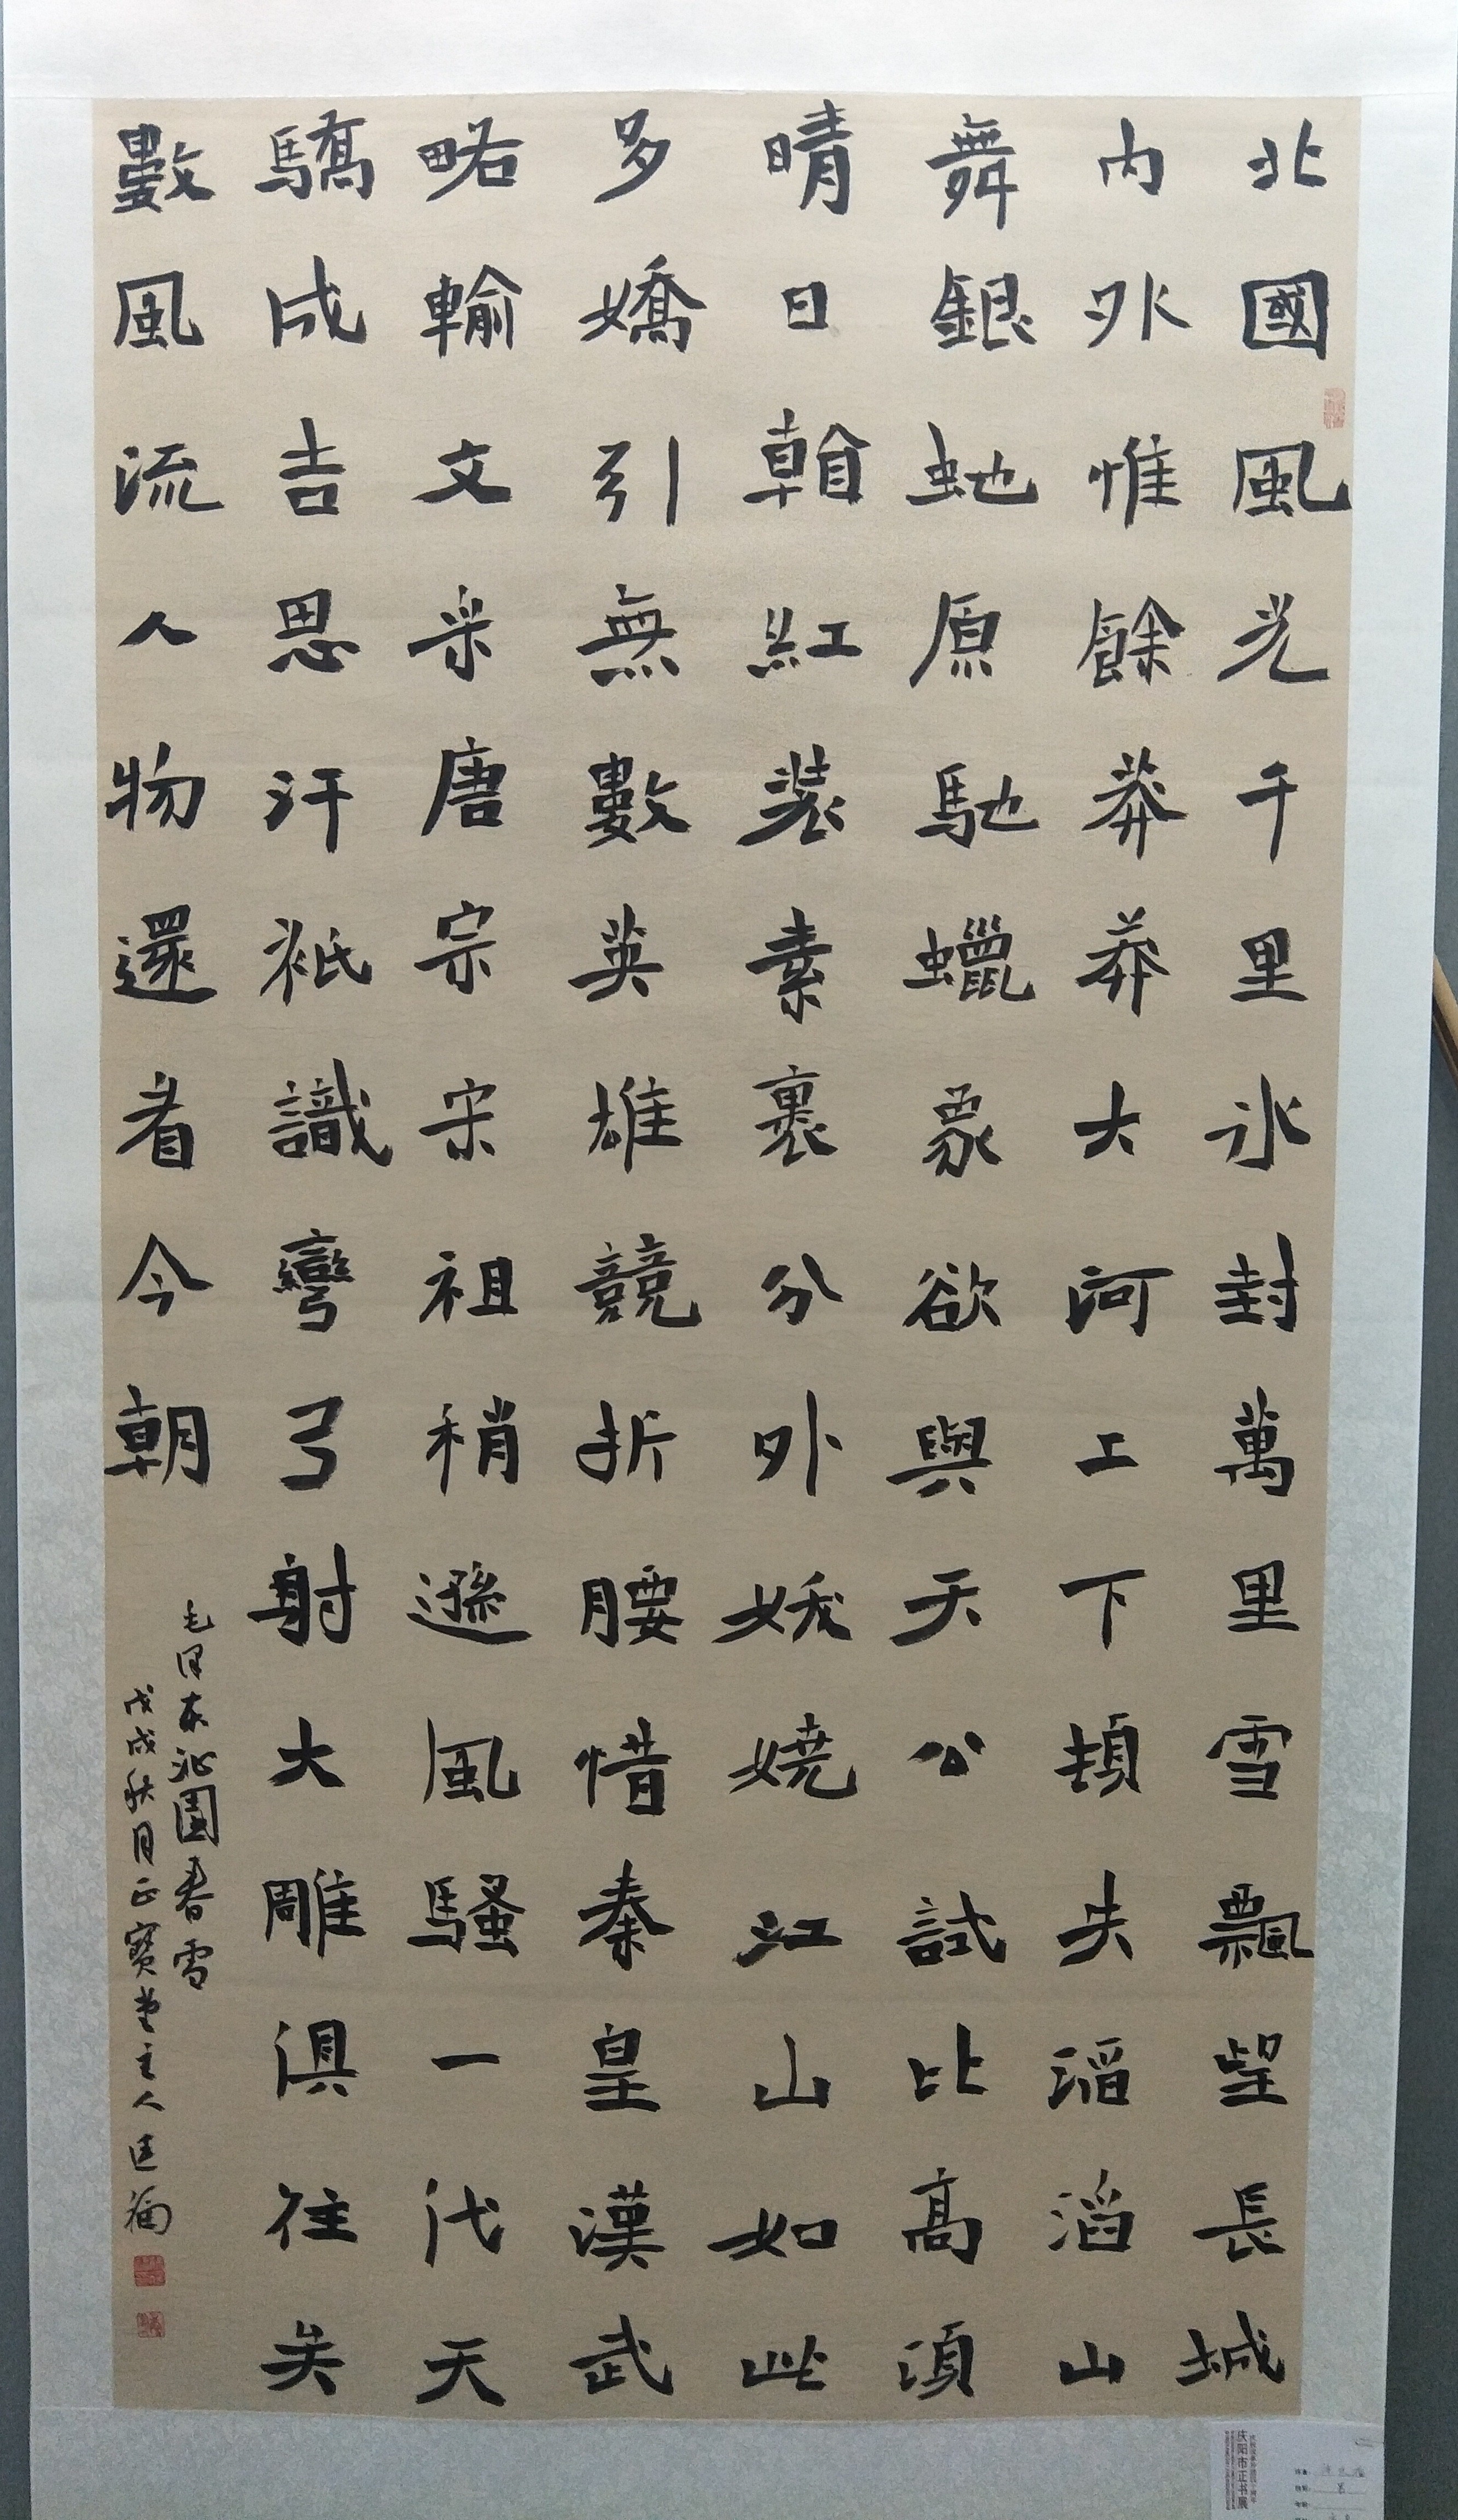 北國風光千里氷封萬里雪飄望長城
内外惟餘莽莽大河上下頓失滔滔山
舞銀虵原馳蠟象欲與天公試比高須
晴日看紅裝素裹分外妖嬈江山如此
多嬌引無數英雄競折腰惜秦皇漢武
略輸文采唐宗宋祖稍遜風騷一代天
驕成吉思汗衹識彎弓射大雕俱往矣
數風流人物還看今朝
毛泽东沁園春雪
戊戌秋月正寶堂主人
庆阳市正书展